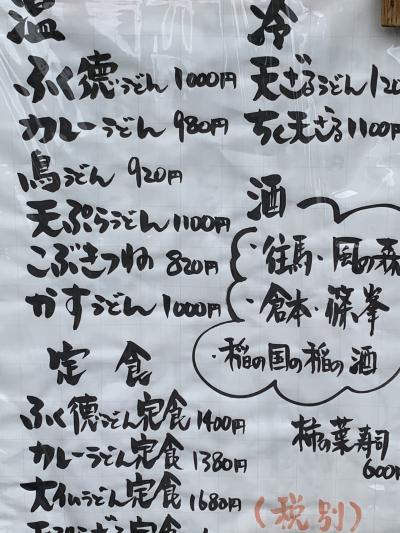 温
ふく徳うどん 1000円
カレーうどん 980円
鳥うどん 920円
天ぷらうどん 1100円
こぶきつね 820円
かすうどん 1000円
定食
ふく徳うどん定食 1400円
カレーうどん定食 1380円
うどん定食 1680円
冷
天ざるうどん 120
ちく天ざる 1100円
酒
・往馬・風の森
・倉本・篠峯
・稲の国の稲の酒
柿の葉寿司
600円
(税別)